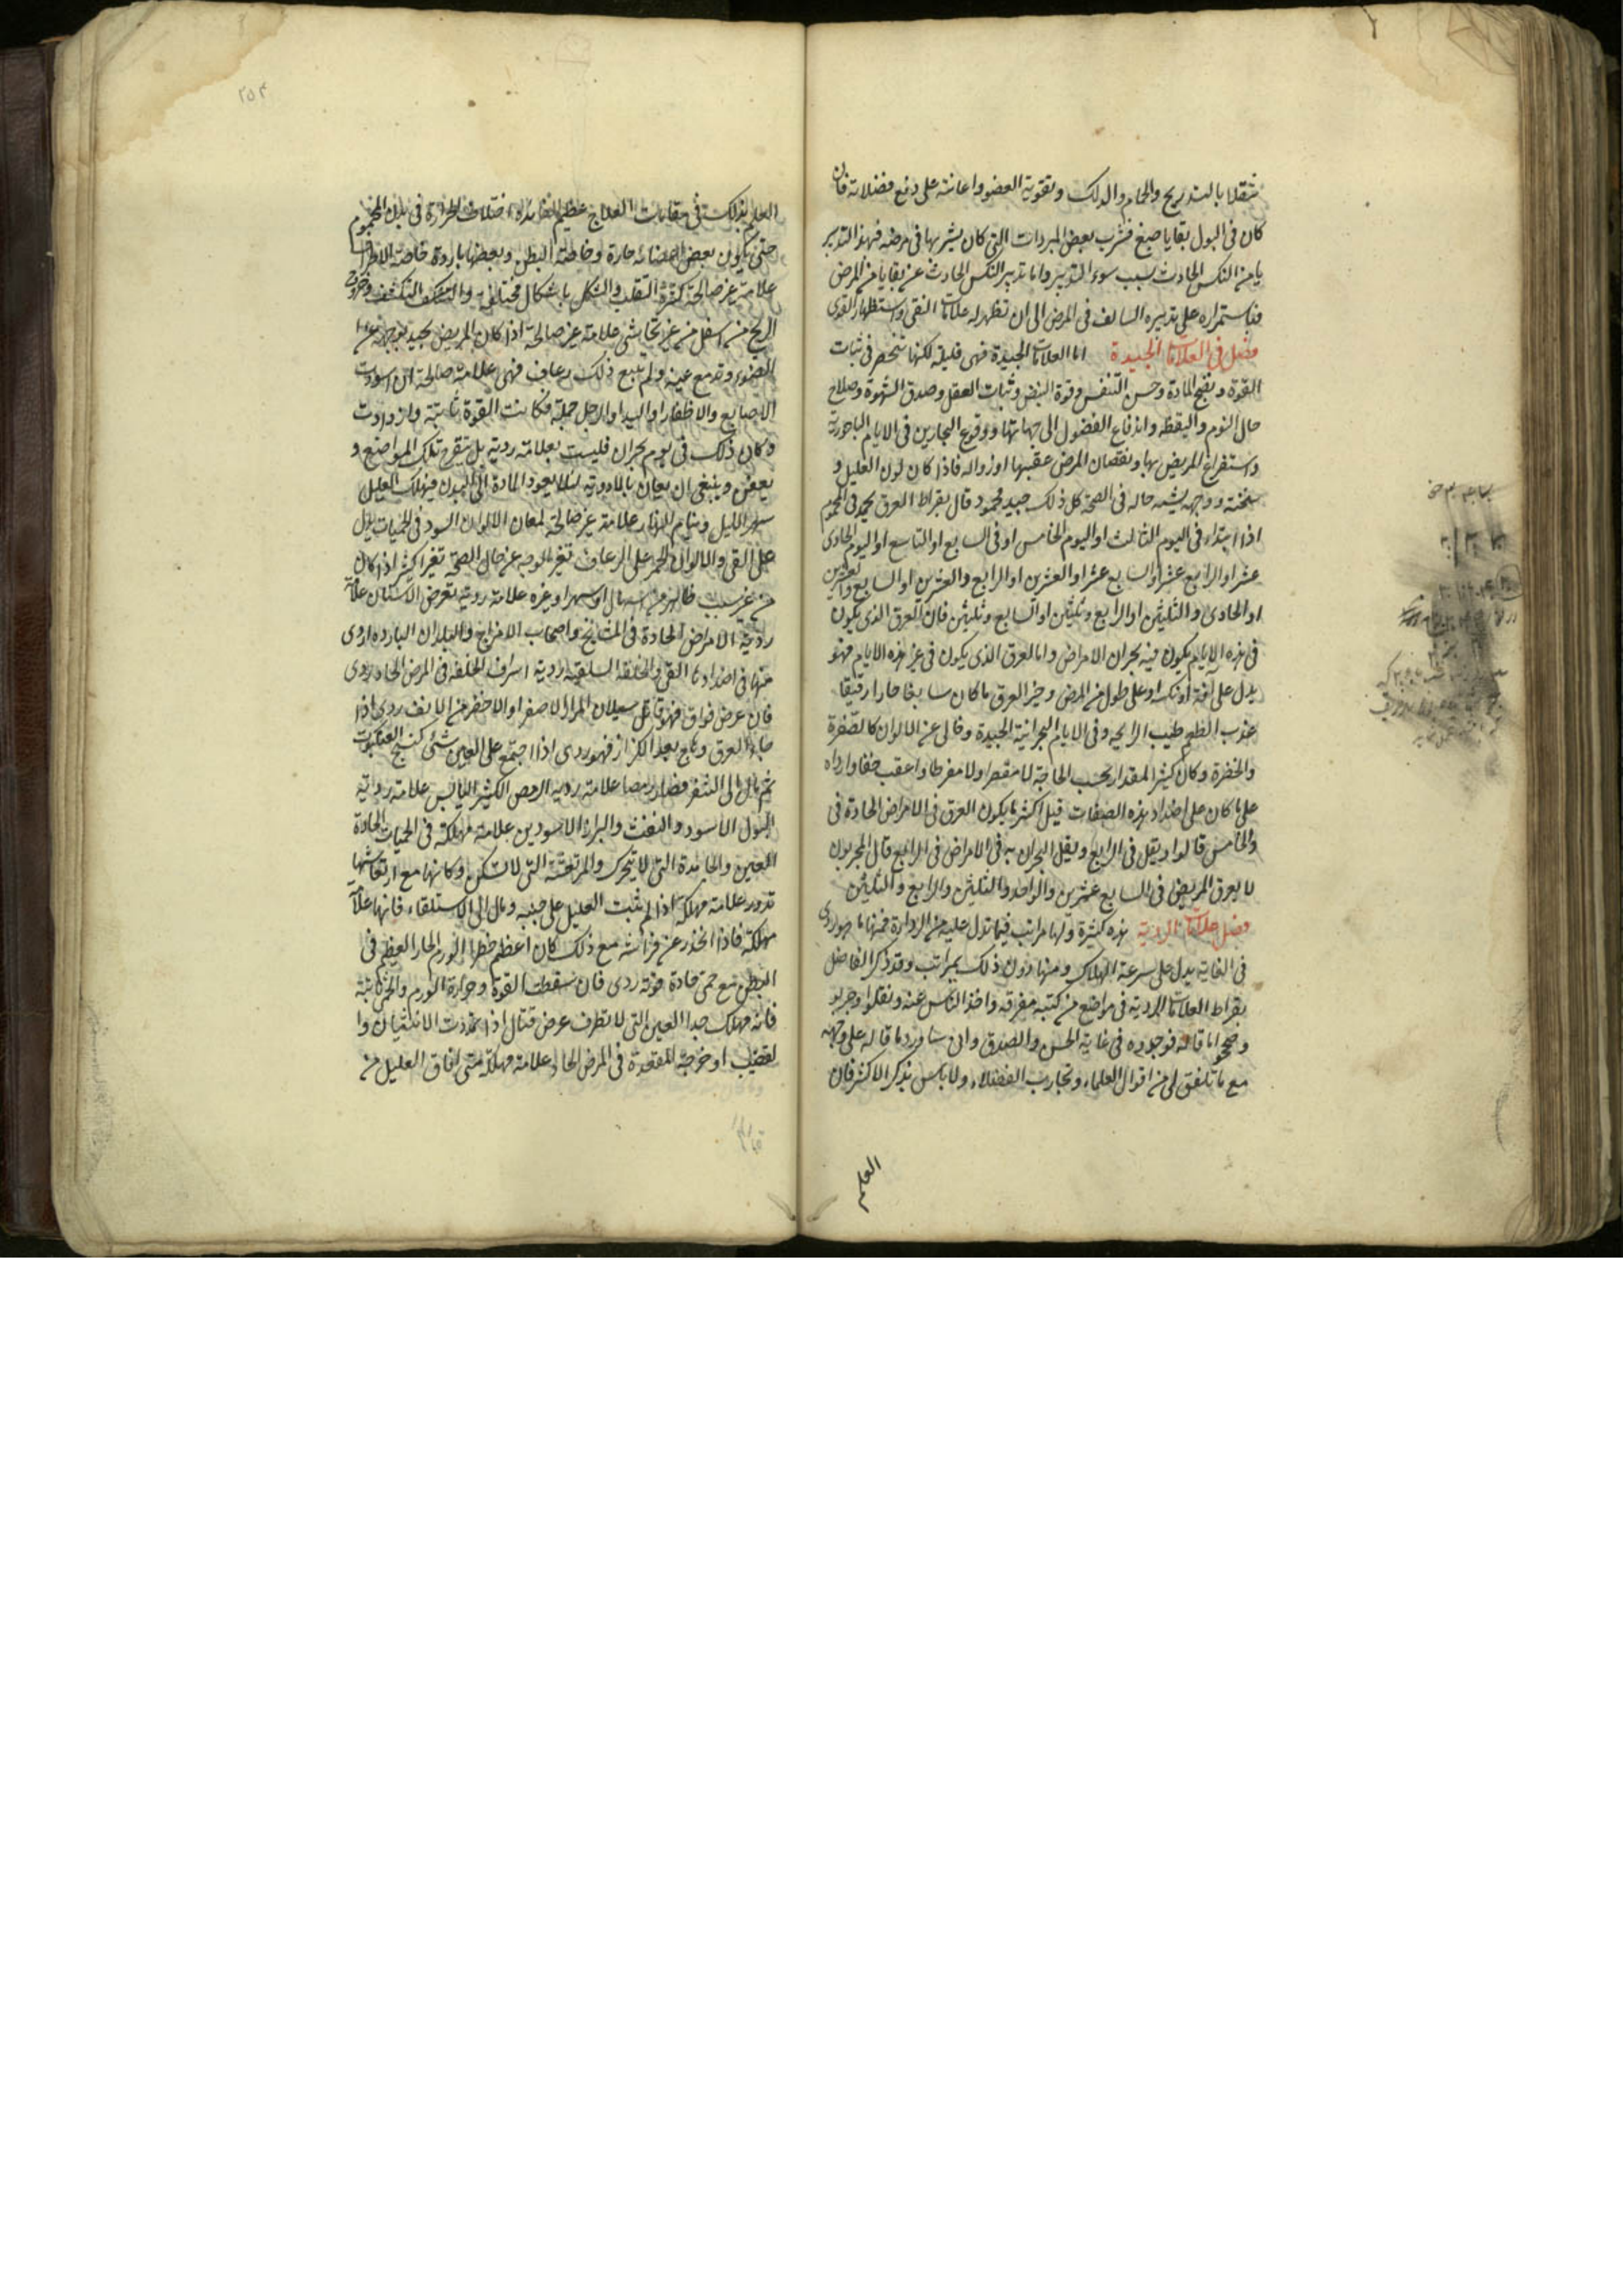 متنقلا بالتدريج والحمام والدلك وتقوية العضو واعانته على دفع فضلاته فان
كان فى البول بقايا صبغ فشرب بعض المبردات التى كان يشربها فى مرضه فهذا التدبير
يامن النكس الحادث بسبب سوء التدبير واما تدبير النكس الحادث عن بقايا من المرض
فباستمراره على تدبيره السالف فى المرض الى ان تظهر له علامات النقى واستظهار القوى
فصل فى العلامات الجيدة اما العلامات الجيدة فهى قليلة لكنها تنحصر فى ثبات
القوة ونضج المادة وحسن التنفس وقوة النبض وثبات العقل وصدق الشهوة وصلاح
حال النوم واليقظه واندفاع الفضول الى جهاتها ووقوع البحارين فى الايام الباحورية
واستفراغ المريض بها ونقصان المرض عقيبها او زواله فاذا كان لون العليل و
سحنته ووجهه يشبه حاله فى الصحة كل ذلك جيد محمود قال بقراط العرق يحمد فى المحموم
اذا ابتداء فى اليوم الثالث او اليوم الخامس او فى السابع او التاسع او اليوم الحادى
عشر او الرابع عشر او السابع عشر او العشرين او الرابع والعشرين او السابع والعشرين
او الحادى والثلثين او الرابع وثلثين او السابع وثلثين فان العرق الذى يكون
فى هذه الايام يكون فيه بحران الامراض واما العرق الذى يكون فى غير هذه الايام فهو
يدل على افة او نكس او على طول من المرض وخير العرق ما كان سابغا حارا رقيقا
عذب الطعم طيب الرايحه وفى الايام البحرانية الجيدة وخالى عن الالوان كالصفرة
والخضرة وكان كثير المقدار بحسب الحاجة لا مقصرا ولا مفرطا واعقب خفا وارداه
على ما كان على اضداد هذه الصفات قيل اكثر ما يكون العرق فى الامراض الحادة فى
والخامس قالوا ويقل فى الرابع ويقل البحران به فى الامراض فى الرابع قال المجربون
لا يعرق المريض فى السابع عشرين والواحد والثلثين والرابع والثلثين
فصل علامات الردية هذه كثيرة ولها مراتب فيما تدل عليه من الرداءة فمنها ما هو ردى
فى الغاية يدل على سرعة الهلاك ومنها دون ذلك بمراتب وقد ذكر الفاضل
بقراط العلامات الردية فى مواضع من كتبه مفرقه واخذ الناس عنه ونقلوا وجربو
وصححوا ما قاله فوجدوه فى غاية الحسن والصدق وانى ساورد ما قاله على وجهه
مع ما تلفق لى من اقوال العلماء وتجارب الفضلاء ولا باس بذكر الاكثر فان
العلم
٢٥٤
العلم بذلك فى مقابات العلاج عظيم الفائدة اختلاف الحرارة فى بدن المحموم
حتى يكون بعض اعضائه حارة وخاصة البطن وبعضها باردة خاصة الاطراف
علامة غير صالحة كثرة التقلب والتشكل باشكال مختلفة والتكشف وخروج
الريح من اسفل من غير تحاشى علامة غير صالحة اذا كان المريض يحيد بوجهه عن
الضوء وتدمع عينه ولم يتبع ذلك رعاف فهى علامة صالحة ان اسودت
الاصابع والاظفار او اليد او الرجل جملة فكانت القوة ثابتة وازدادت
وكان ذلك فى يوم بحران فليست بعلامة ردية بل يتقرح تلك المواضع و
يعفن وينبغى ان يعان بالادوية لئلا يعود المادة الى البدن فيهلك العليل
سهر الليل وينام النهار علامة غير صالحة لمعان الالوان السود فى الحميات يدل
على القى والالوان الحمر على الرعاف تغير الوجه عن حال الصحة تغيرا كثيرا اذا كان
من غير سبب ظاهر من اسهال او سهر او غيره علامة ردية تعرض الاسنان علامة
ردية الامراض الحادة فى المشايخ واصحاب الامزاج والبلدان البارده اردى
منها فى اضدادها القى والخلفة السلقية ردية اسراف الخلفه فى المرض الحاد ردى
فان عرض فواق فهو قاتل سيلان المرار الاصفر او الاخضر من الانف ردى اذا
جاء العرق وهاج بعد الكزاز فهو ردى اذا اجتمع على العين شئ كنسج العنكبوت
ثم مال الى الشفر فصار رمصا علامة ردية الرمص الكثير اليابس علامة ردية
البول الاسود والنفث والبراز الاسودين علامة مهلكة فى الحميات الحادة
العين والجامدة التى لا يتحرك والمرتعشة التى لا تسكن وكانها مع ارتعاشها
تدور علامة مهلكة اذا لم يثبت العليل على جنبه ومال الى الاستلقاء فانها علامة
مهلكة فاذا انحدر عن فراشه مع ذلك كان اعظم خطرا الورم الحار العظيم فى
البطن مع حمى حادة قوية ردى فان سقطت القوة وحرارة الورم والحمى ثابتة
فانه مهلك جدا العين التى لا تطرف عرض قتال اذا تمددت الانثيان وا
لقضيب او خرجت المقعدة فى المرض الحاد علامة مهلكة متى افاق العليل من